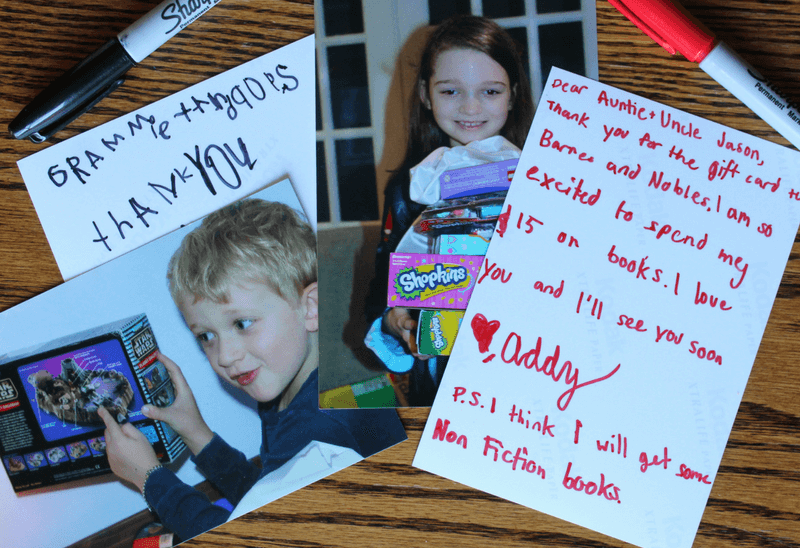 Sharp
GRAMMie
thANkYOU
STAR WARS
Shopkins
Dear Auntie + Uncle Jason,
Thank you for the gift card t
Barnes and Nobles. I am so
excited to spend my
$15 on books. I love
you and I'll see you soon
♥ addy
P.S. I think I will get some
Non Fiction books.
Permanent